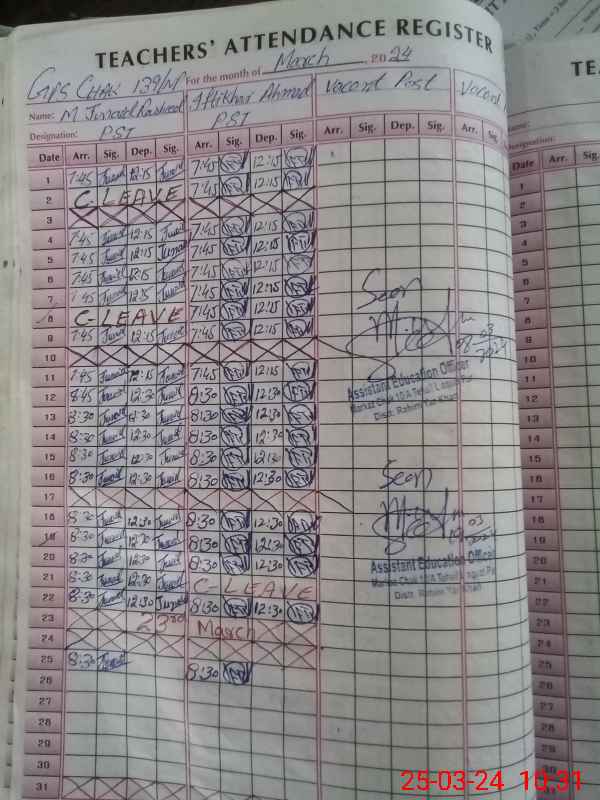 TEACHERS' ATTENDANCE REGISTER
GPS CHAK 139/NP For the month of March, 2024
Name: M Junaid Rasheed Iftikhar Ahmed Vacant Post Vacant
Designation: PST PST
Date Arr. Sig. Dep. Sig. Arr. Sig. Dep. Sig. Arr. Sig. Dep. Sig. Arr. Sig.
1 7:45 Junaid 12:15 Junaid 7:45 12:15
2 C-LEAVE 7:45 12:15
3
4 7:45 Junaid 12:15 Junaid 7:45 12:15
5 7:45 Junaid 12:15 Junaid 7:45 12:15
6 7:45 Junaid 12:15 Junaid 7:45 12:15
7 7:45 Junaid 12:15 Junaid 7:45 12:15
8 C-LEAVE 7:45 12:15
9 7:45 Junaid 12:15 Junaid 7:45 12:15
Seen
08-03-2024
10
11 7:45 Junaid 12:15 Junaid 7:45 12:15
Assistant Education Officer
12 8:45 Junaid 12:30 Junaid 8:30 12:30
Markaz Chak 10/A Tehsil
Distt. Rahim Yar Khan
13 8:30 Junaid 12:30 Junaid 8:30 12:30
14 8:30 Junaid 12:30 Junaid 8:30 12:30
15 8:30 Junaid 12:30 Junaid 8:30 12:30
16 8:30 Junaid 12:30 Junaid 8:30 12:30
Seen
17
18 8:30 Junaid 12:30 Junaid 8:30 12:30
19 8:30 Junaid 12:30 Junaid 8:30 12:30
20 8:30 Junaid 12:30 Junaid 8:30 12:30
Assistant Education Officer
Markaz Chak 10/A Tehsil
Distt. Rahim Yar Khan
21 8:30 Junaid 12:30 Junaid C-LEAVE
22 8:30 Junaid 12:30 Junaid 8:30 12:30
23 23rd March
24
25 8:30 Junaid 8:30
26
27
28
29
30
31
TE
Name:
Designation:
Date Arr. Sig.
1
2
3
4
5
6
7
8
9
10
11
12
13
14
15
16
17
18
19
20
21
22
23
24
25
26
27
28
29
30
25-03-24 10:31